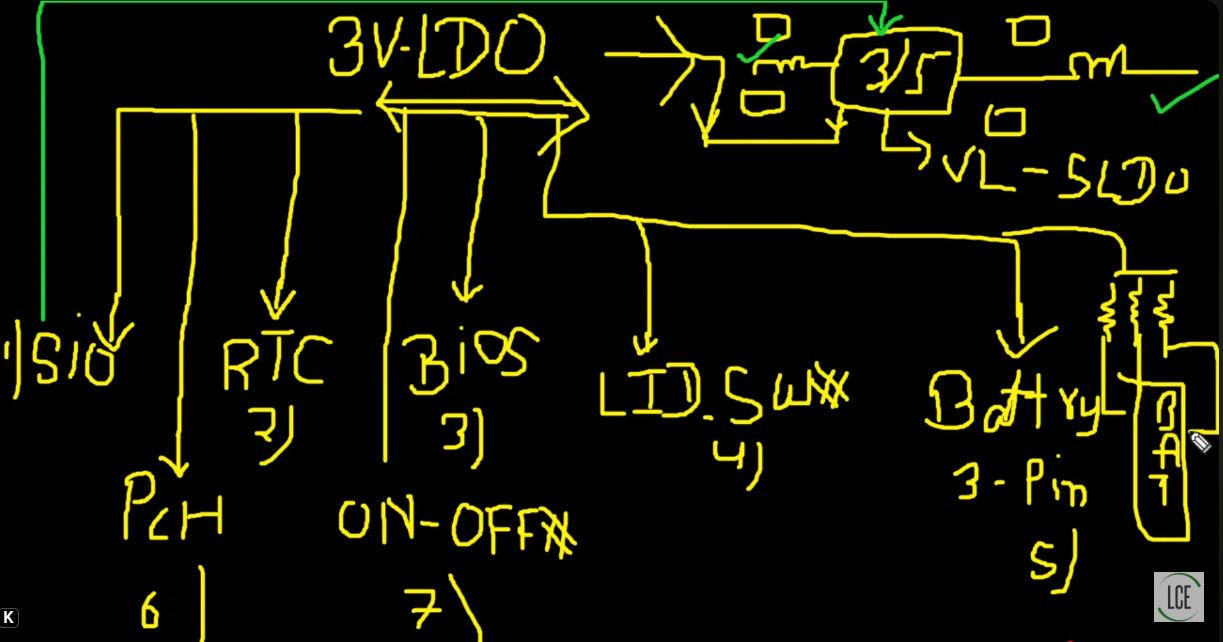 3V-LDO
3/5
VL-5LDO
1) SiO
RTC
2)
BiOS
3)
LID.SW#
4)
Battry
3-Pin
5)
BAT
PCH
6)
ON-OFF#
7)
LCE
K